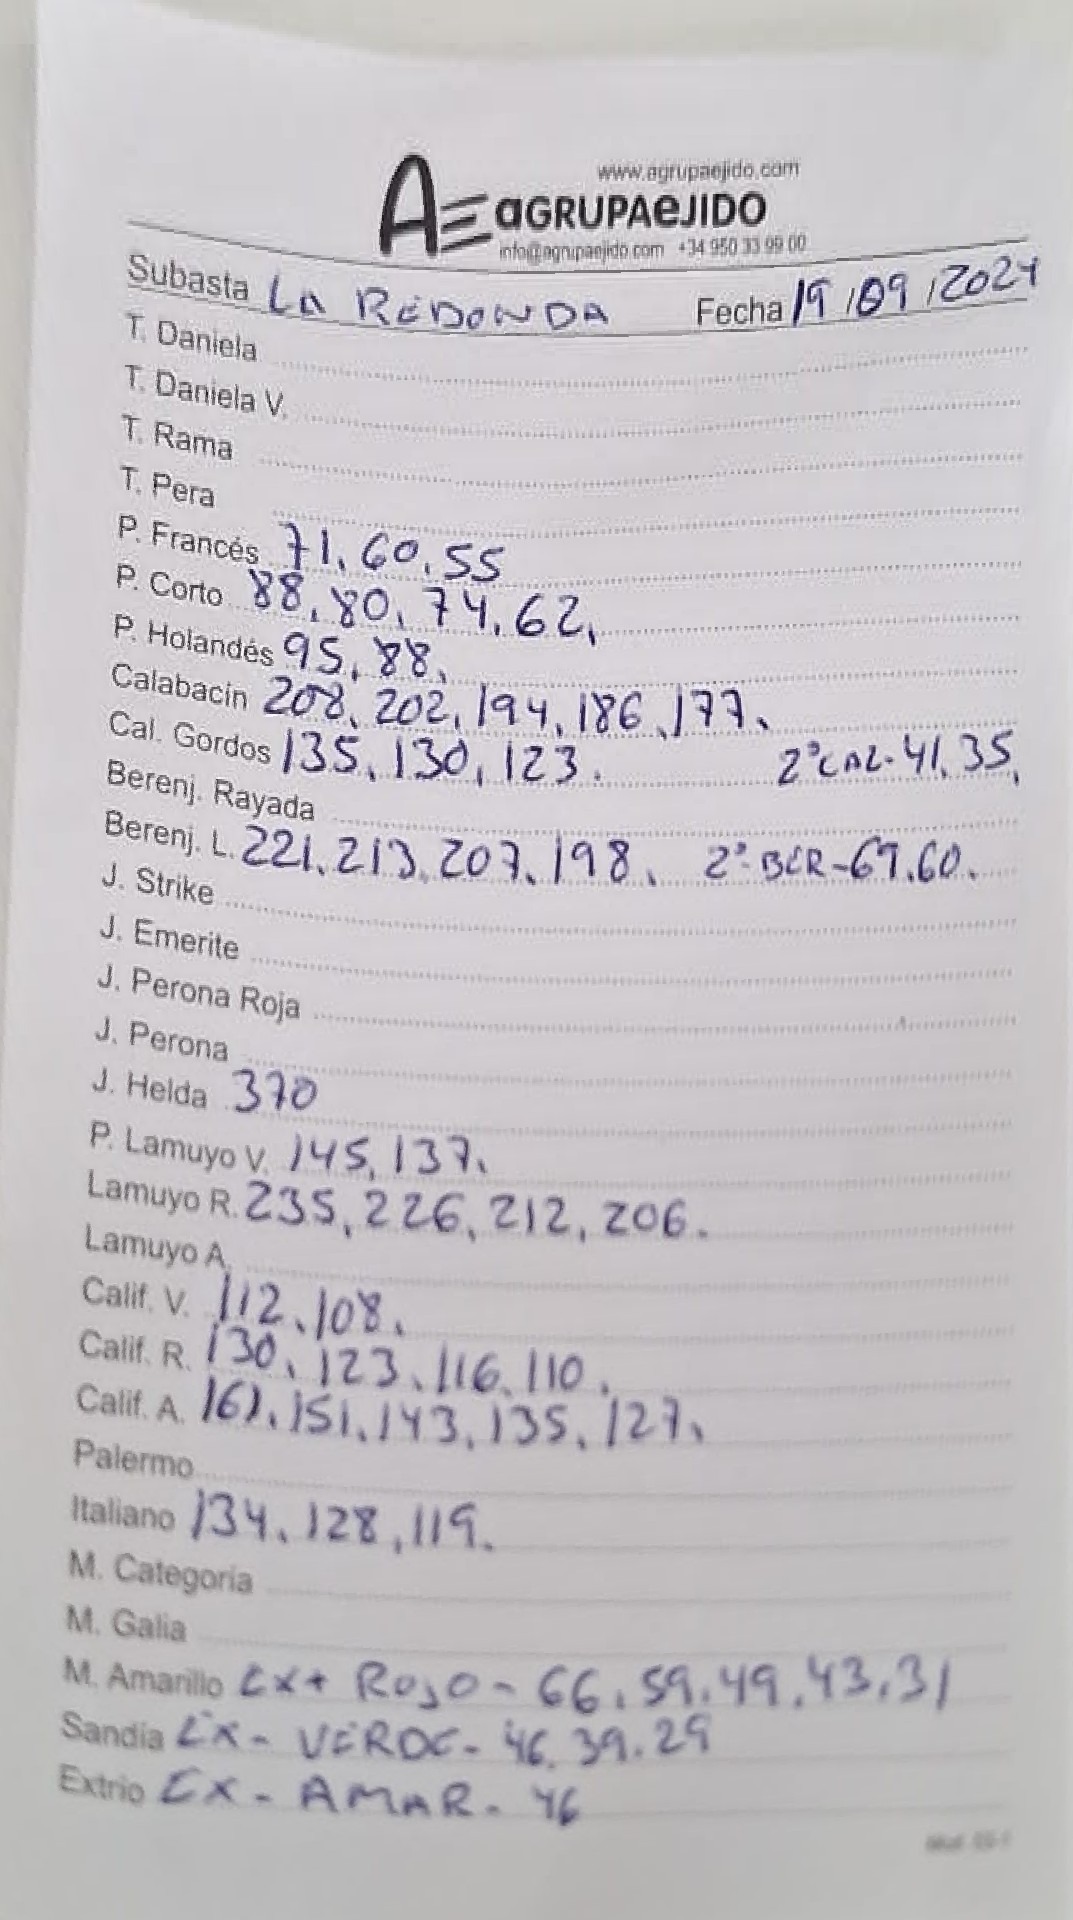 www.agrupaejido.com
AGRUPAEJIDO
info@agrupaejido.com +34 950 33 99 00
Subasta LA REDONDA Fecha 19/09/2024
T. Daniela
T. Daniela V.
T. Rama
T. Pera
P. Francés 71, 60, 55
P. Corto 88, 80, 74, 62,
P. Holandés 95, 88,
Calabacin 208, 202, 194, 186, 177,
Cal. Gordos 135, 130, 123. 2ª CAL- 41, 35,
Berenj. Rayada
Berenj. L. 221, 213, 207, 198, 2ª BER-67, 60.
J. Strike
J. Emerite
J. Perona Roja
J. Perona
J. Helda 370
P. Lamuyo V. 145, 137,
Lamuyo R. 235, 226, 212, 206.
Lamuyo A.
Calif. V. 112, 108,
Calif. R. 130, 123, 116, 110,
Calif. A. 161, 151, 143, 135, 127,
Palermo
Italiano 134, 128, 119.
M. Categoria
M. Galia
M. Amarillo EX+ ROJO - 66, 59, 49, 43, 31
Sandía EX - VERDE - 46, 39, 29
Extrio EX - AMAR - 46